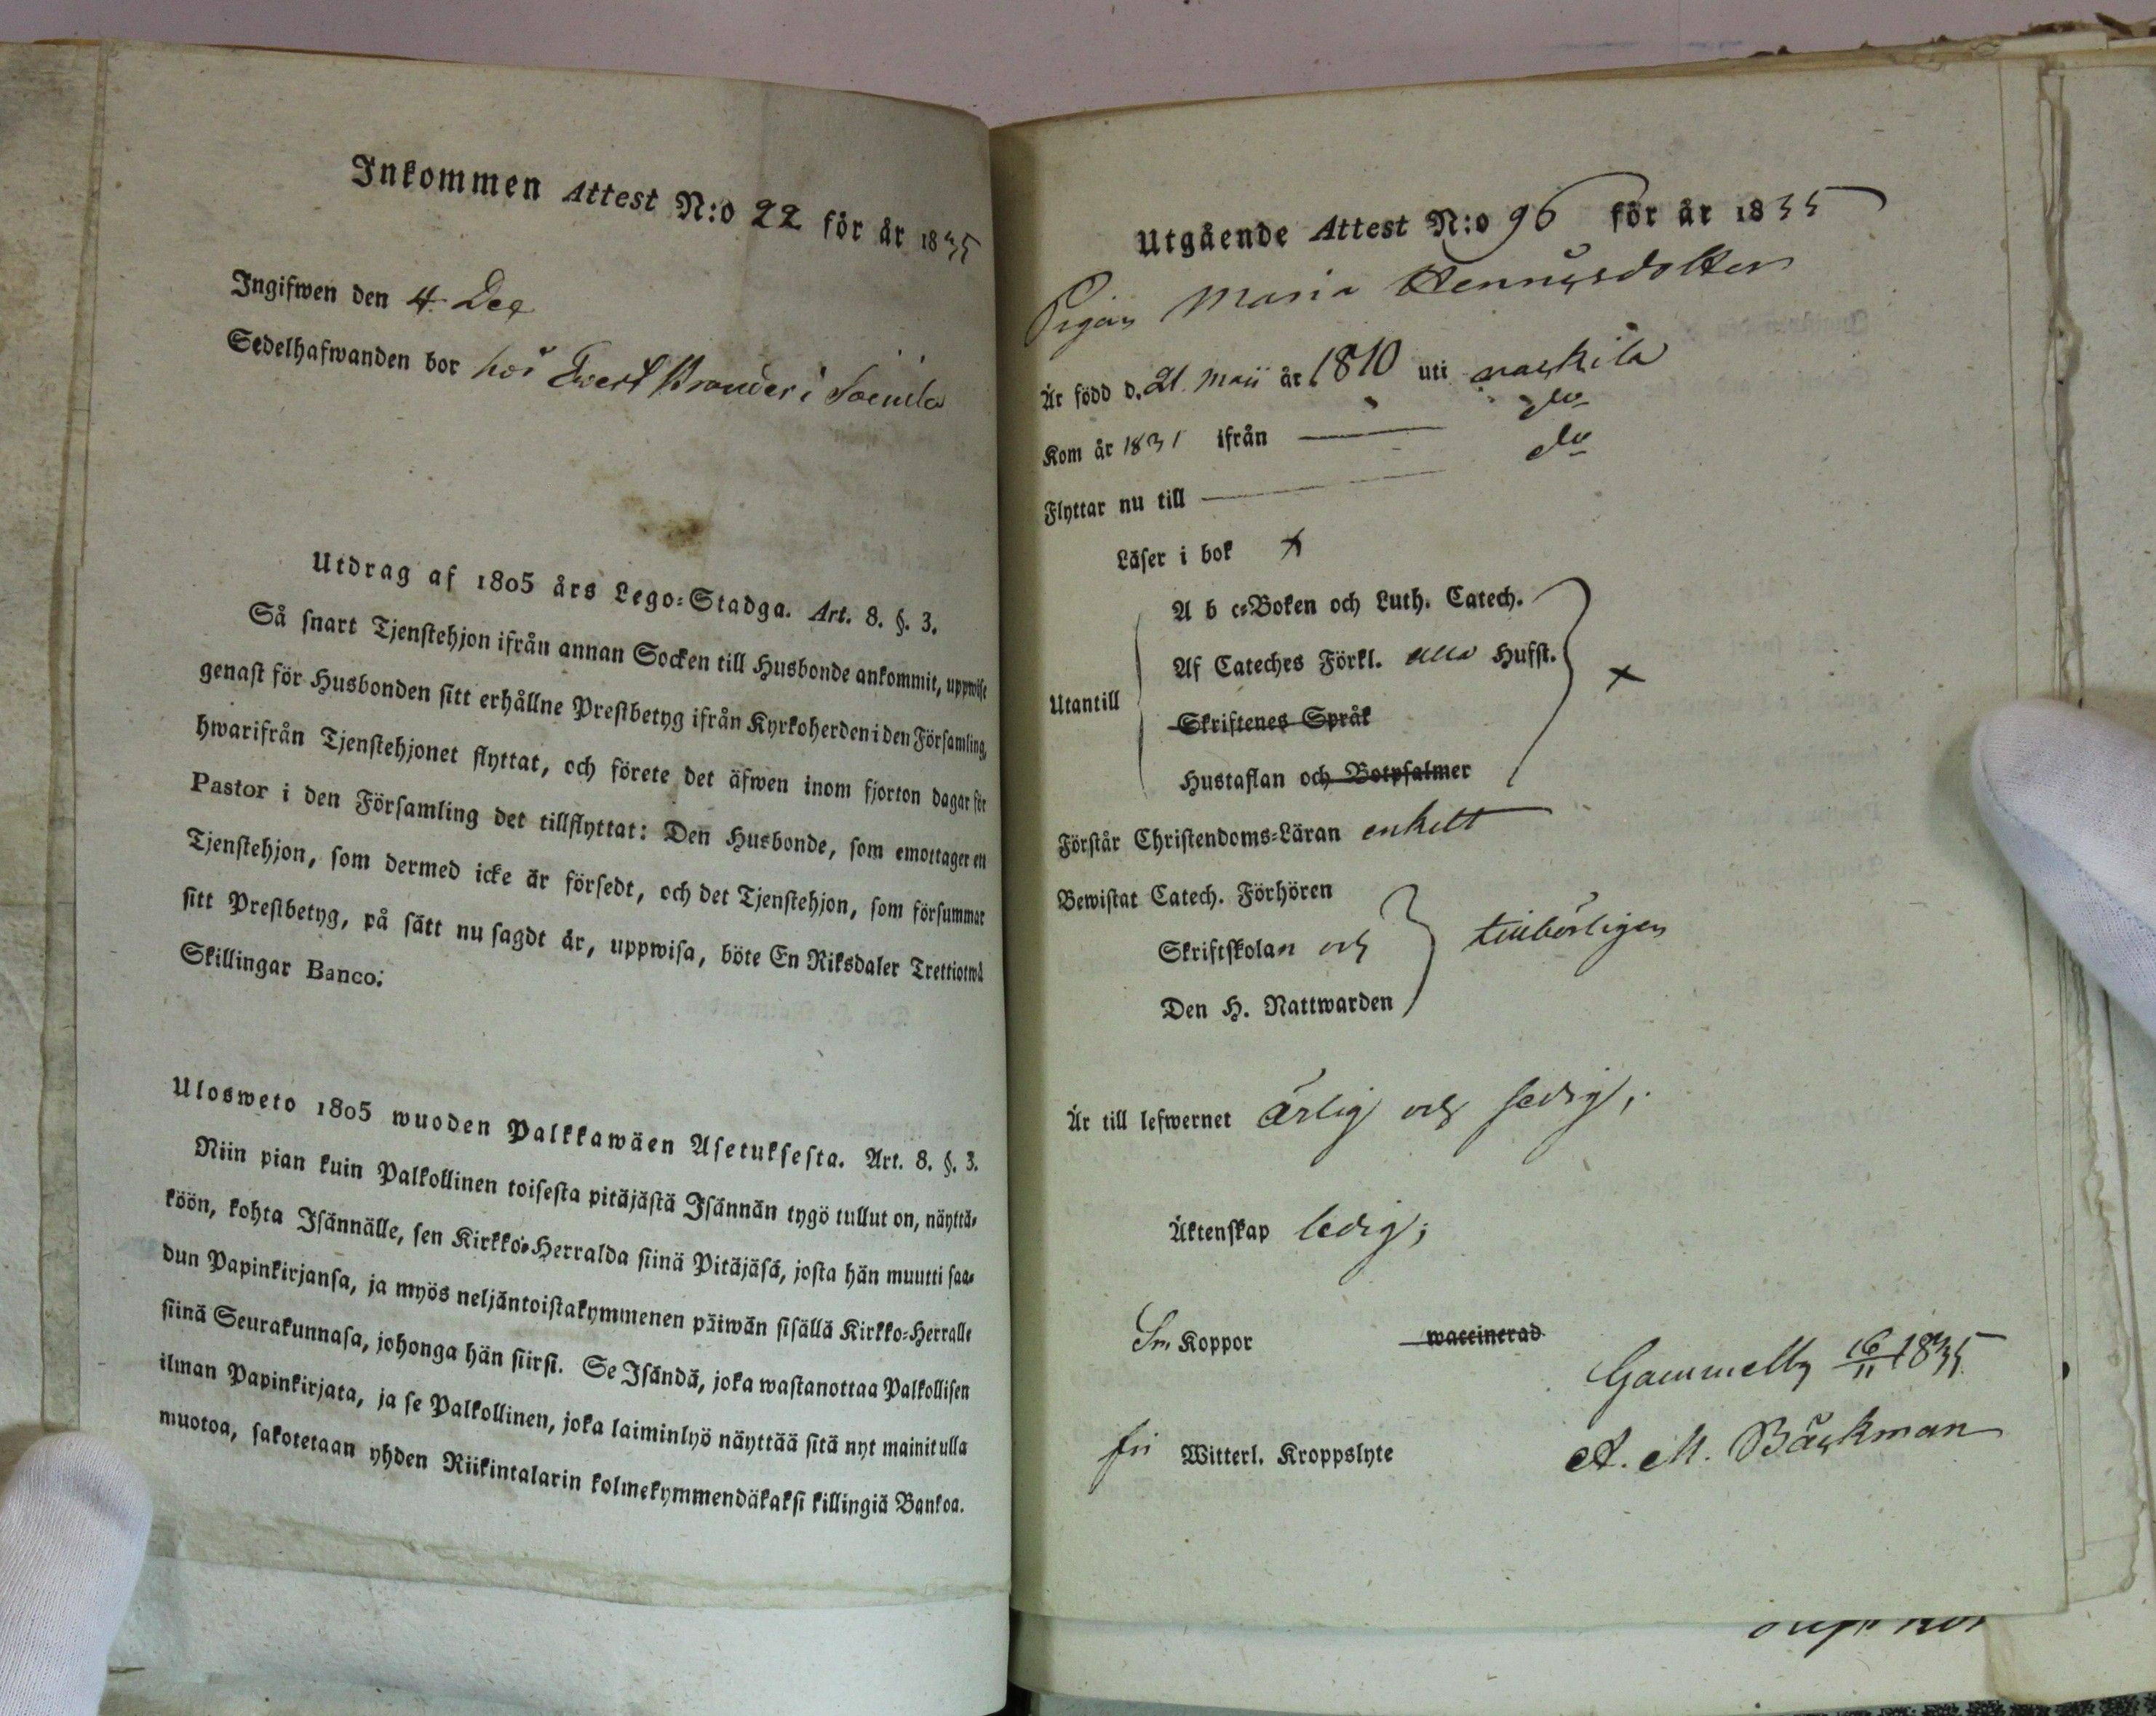 Inkommen Attest N:o 22 för år 1835
Ingifwen den 4. Dec
Sedelhafwanden bor hos Evert Brander i Soinila
Utdrag af 1805 års Lego-Stadga. Art. 8. §. 3.
Så snart Tjenstehjon ifrån annan Socken till Husbonde ankommit, uppwise
genast för Husbonden sitt erhållne Prestbetyg ifrån Kyrkoherden i den Församling,
hwarifrån Tjenstehjonet flyttat, och förete det äfwen inom fjorton dagar för
Pastor i den Församling det tillflyttat: Den Husbonde, som emottager ett
Tjenstehjon, som dermed icke är försedt, och det Tjenstehjon, som försummar
sitt Prestbetyg, på sätt nu sagdt är, uppwisa, böte En Riksdaler Trettiotwå
Skillingar Banco.
Ulosweto 1805 wuoden Palkkawäen Asetuksesta. Art. 8. §. 3.
Niin pian kuin Palkollinen toisesta pitäjästä Isännän tygö tullut on, näyttä-
köön, kohta Isännälle, sen Kirkko-Herralda siinä Pitäjäsä, josta hän muutti saa-
dun Papinkirjansa, ja myös neljäntoistakymmenen päiwän sisällä Kirkko-Herralle
siinä Seurakunnasa, johonga hän siirsi. Se Isändä, joka wastanottaa Palkollisen
ilman Papinkirjata, ja se Palkollinen, joka laiminlyö näyttää sitä nyt mainitulla
muotoa, sakotetaan yhden Riikintalarin kolmekymmendäkaksi killingiä Bankoa.
Utgående Attest N:o 96 för år 1835
Pigan Maria Henricsdotter
Är född d. 21. Maii år 1810 uti Naskila
Kom år 1831 ifrån — do
Flyttar nu till — do
Läser i bok x
A b c-Boken och Luth. Catech.
Af Cateches Förkl. alla Hufst.
Utantill x
Skriftenes Språk
Hustaflan och Botpsalmer
Förstår Christendoms-Läran enkelt
Bewistat Catech. Förhören
Skriftskolan och tillbörligen
Den H. Nattwarden
Är till lefwernet ärlig och sedig;
Äktenskap ledig;
Sm Koppor waccinerad
Gammelby 16/11 1835
fri Witterl. Kroppslyte
A. M. Bäckman